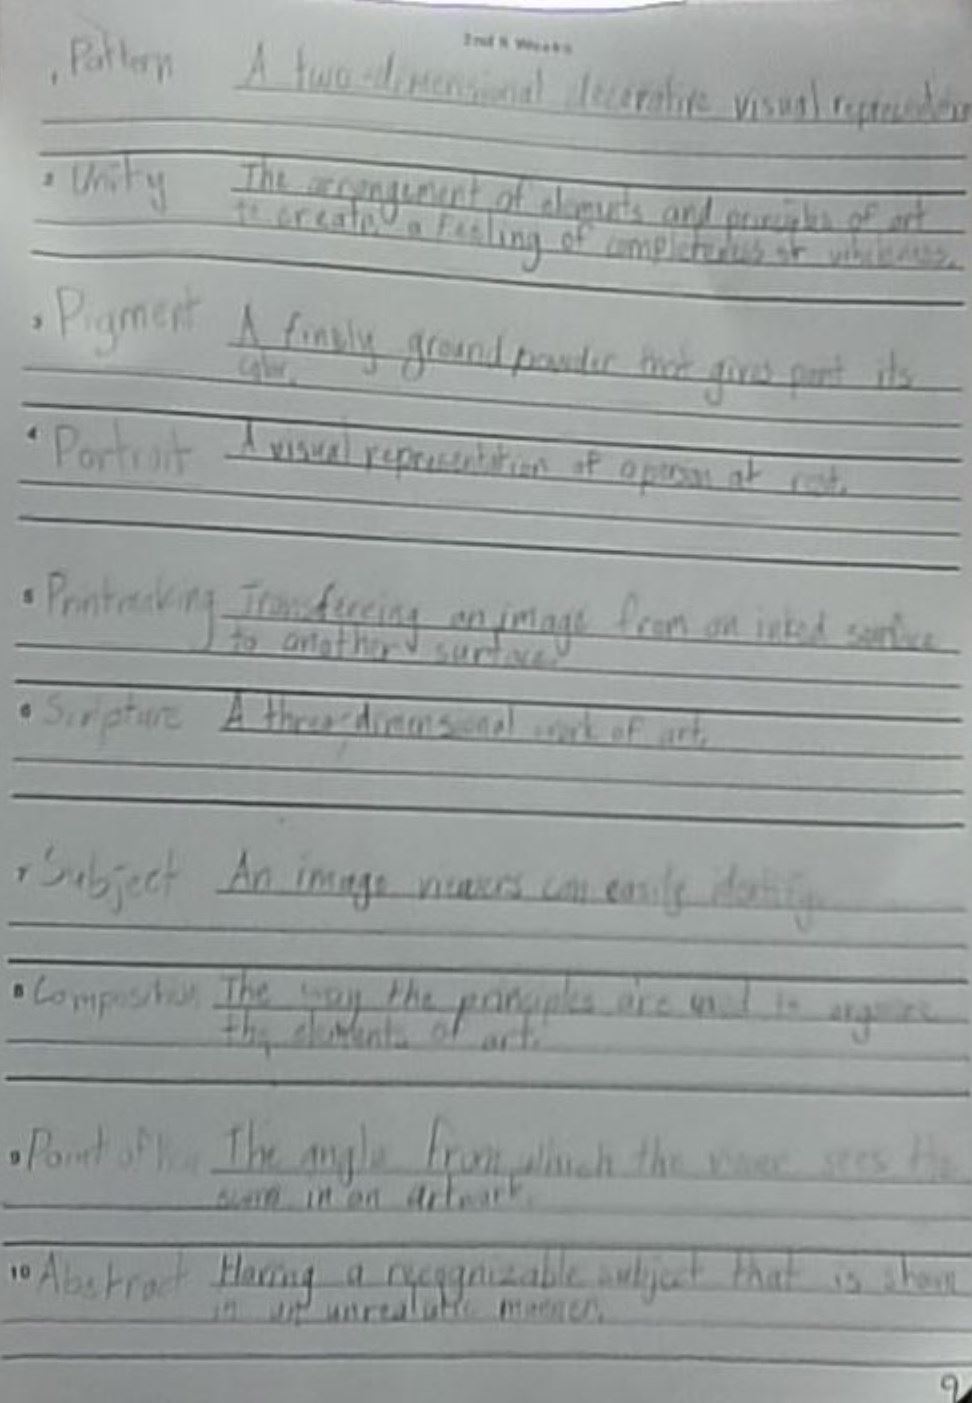 2nd 6 Weeks
1 Pattern A two-dimensional decorative visual representation
2 Unity The arrangement of elements and principles of art
to create a feeling of completeness or wholeness.
3 Pigment A finely ground powder that gives paint its
color.
4 Portrait A visual representation of a person at rest.
5 Printmaking Transferring an image from an inked surface
to another surface.
6 Scripture A three-dimensional work of art.
7 Subject An image viewers can easily identify.
8 Composition The way the principles are used to organize
the elements of art.
9 Point of The angle from which the viewer sees the
in an artwork.
10 Abstract Having a recognizable subject that is shown
in an unrealistic manner.
9